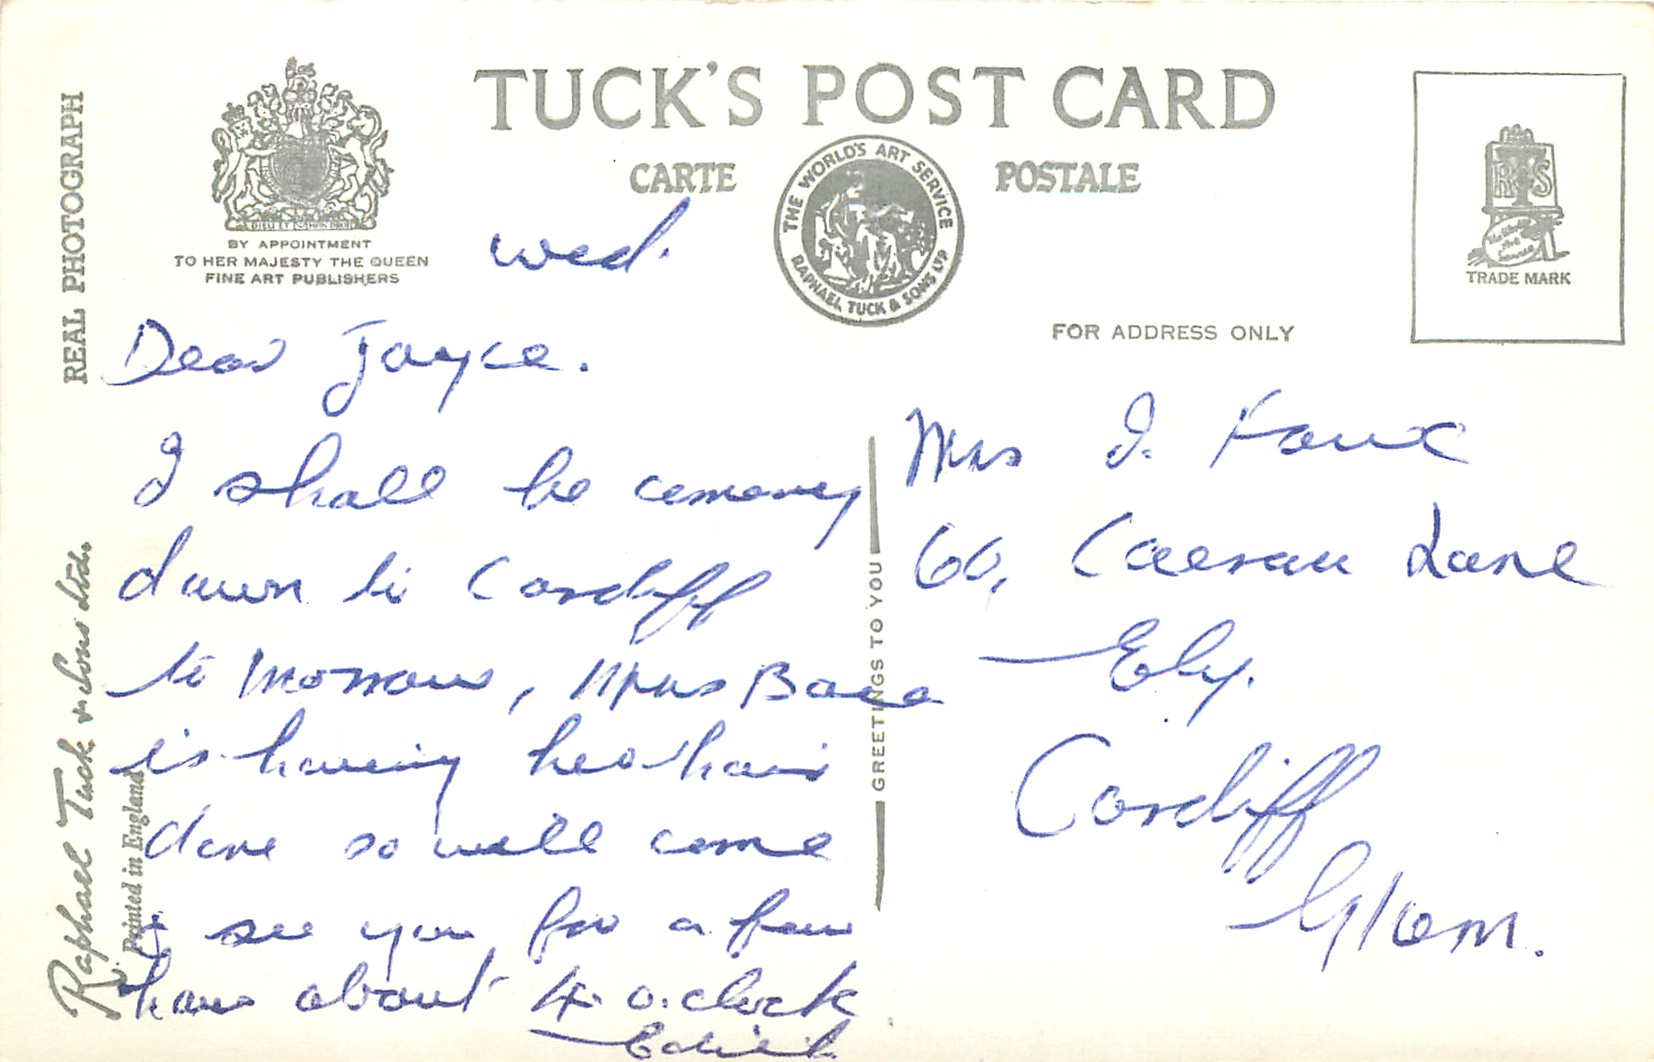 TUCK'S POST CARD
CARTE POSTALE
REAL PHOTOGRAPH
DIEU ET MON DROIT
BY APPOINTMENT
TO HER MAJESTY THE QUEEN
FINE ART PUBLISHERS
THE WORLD'S ART SERVICE
RAPHAEL TUCK & SONS LTD
RTS
TRADE MARK
FOR ADDRESS ONLY
Wed.
Dear Joyce.
I shall be comeing
down to Cardiff
to morrow, Mrs
is having her hair
done so will come
& see you for a few
hours about 4. o.clock
Edith
GREETINGS TO YOU
Mrs J.
60, Caerau Lane
Ely.
Cardiff
Glam.
Raphael Tuck & Sons Ltd.
Printed in England